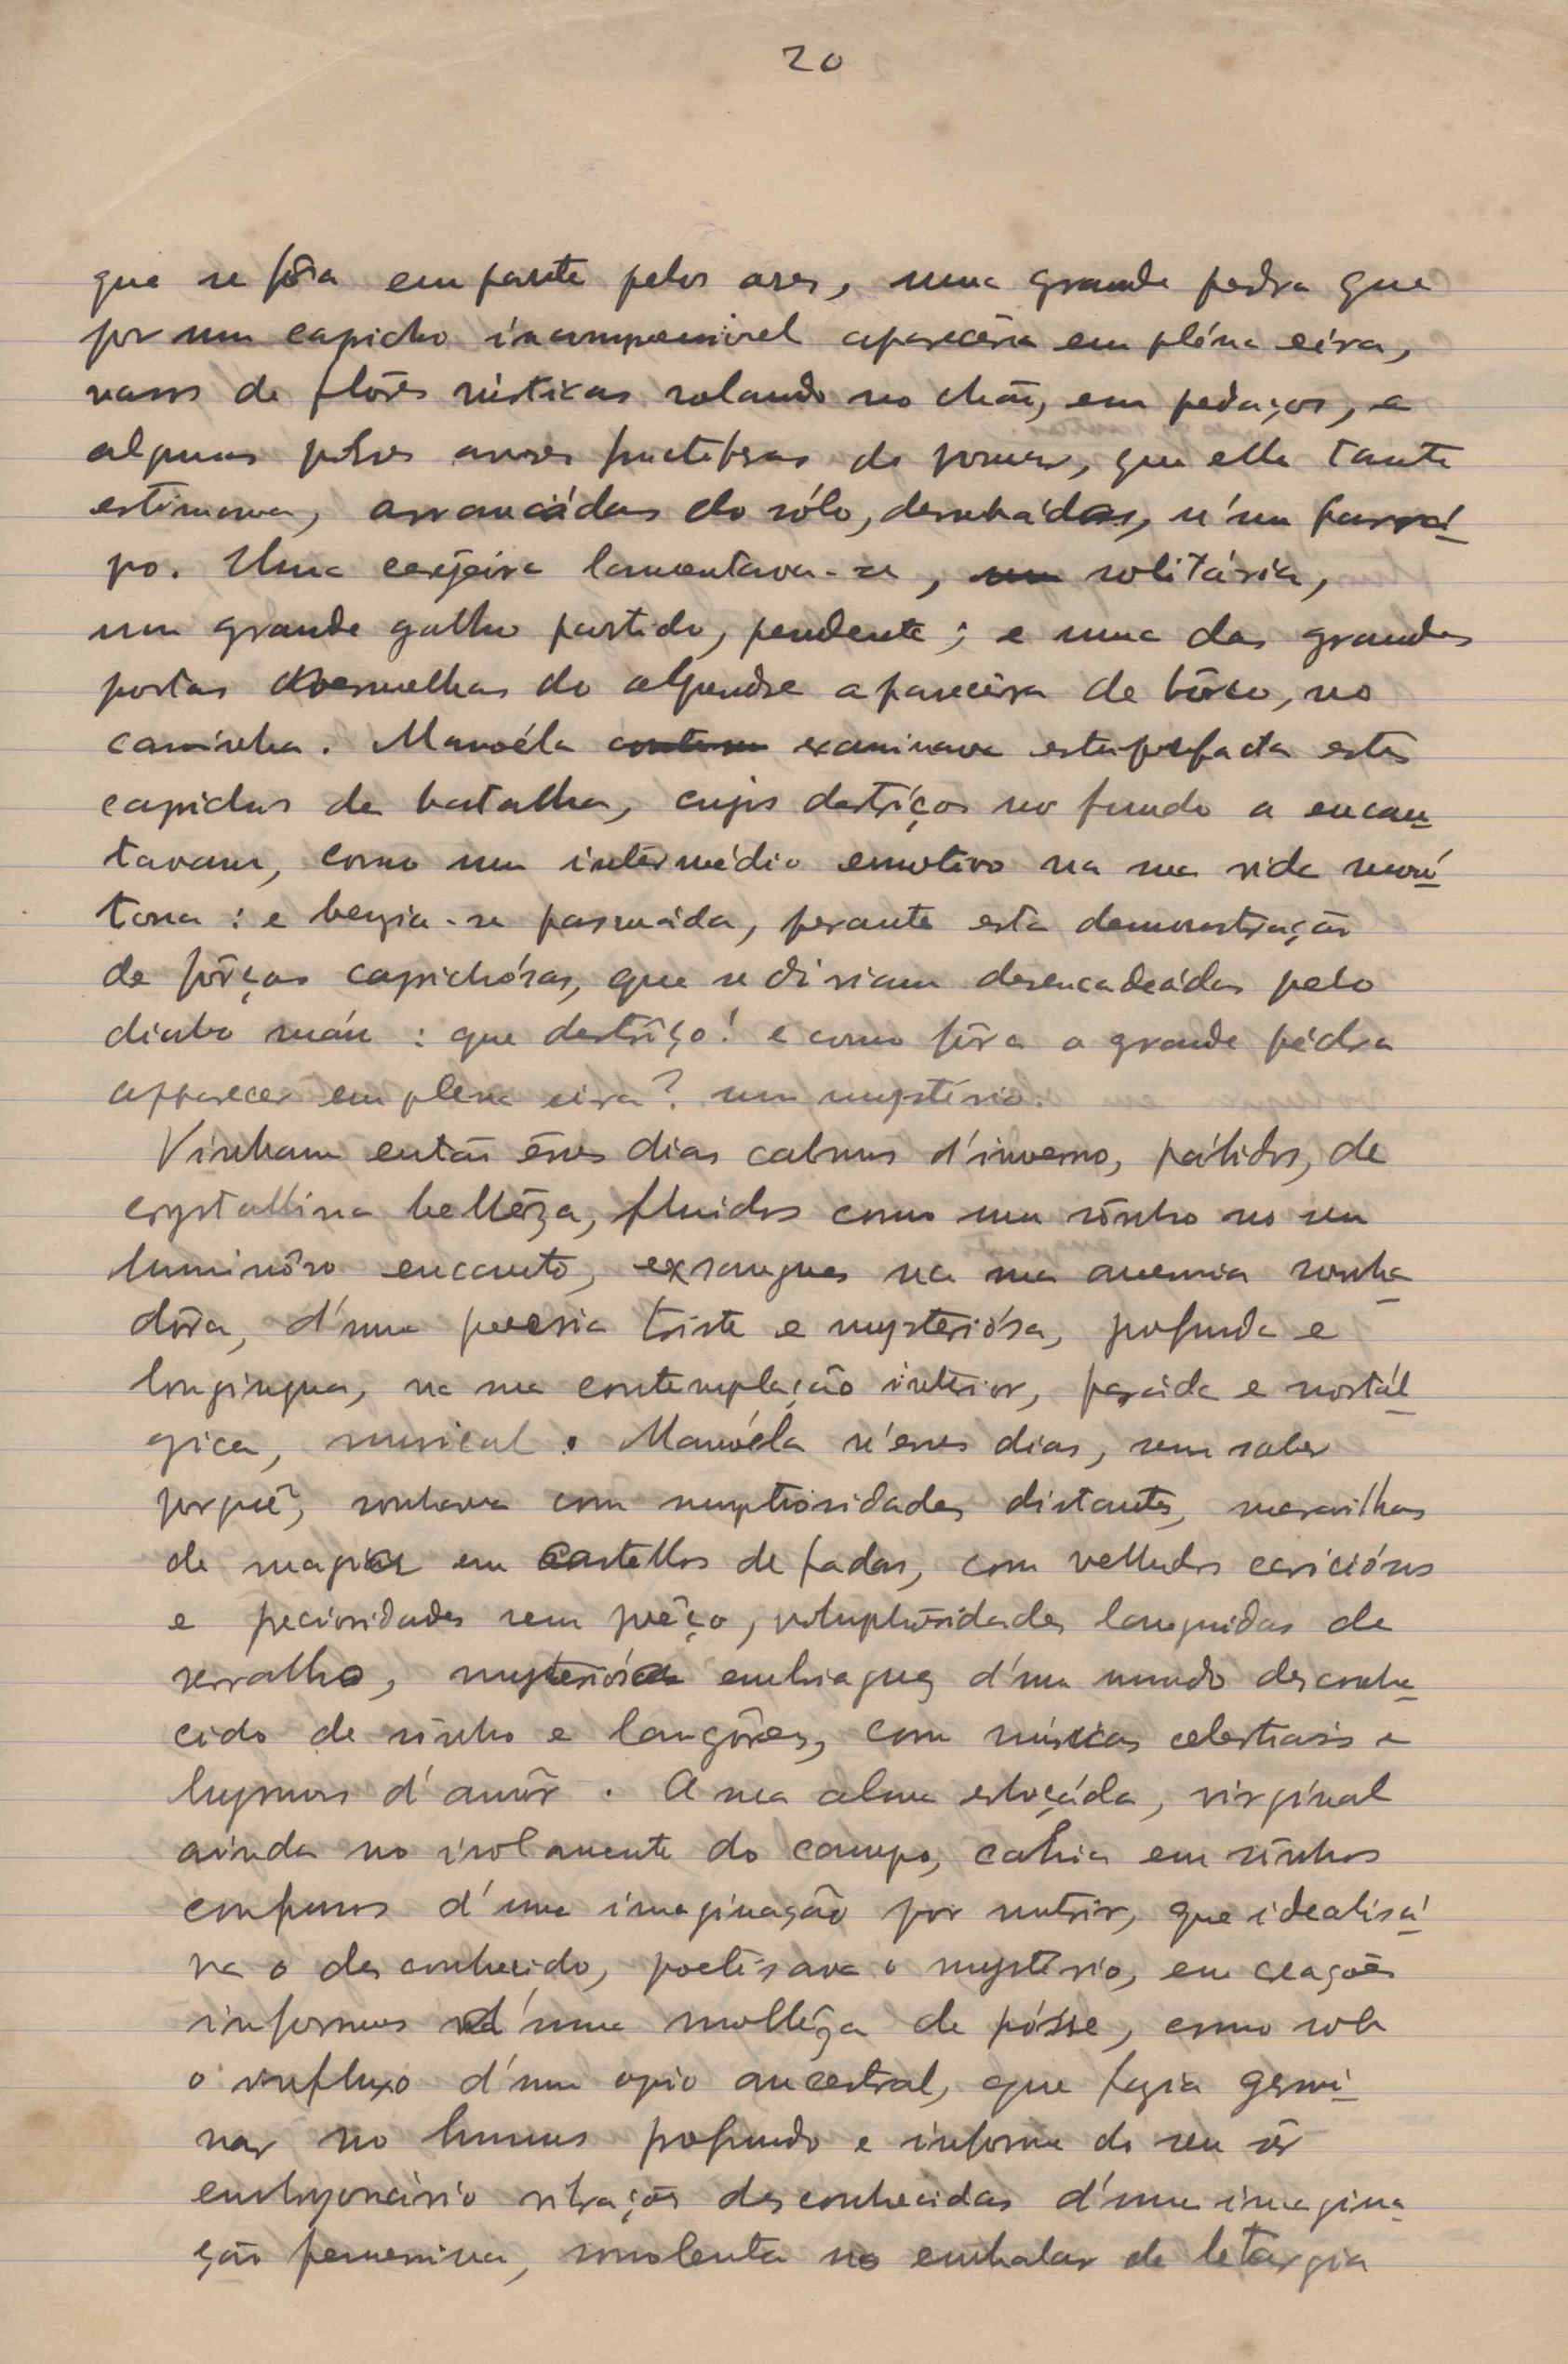 20
que se fôra em parte pelos ares, uma grande pedra que
por um capicho incompensivel aparecêra em pléna eira,
vasos de flôres rústicas rolando no chão, em pedaços, e
algumas pobres arvores fructiferas do pomar, que ella tanto
estimava, arrancádas do sólo, derrubádas, n'um farrá-
po. Uma cerejeira lamentava-se, solitária,
um grande galho partido, pendente; e uma das grandes
portas vermelhas do alpendre aparecêra de bôrco, no
caminho. Manoéla examinava estupefacta estes
capichos de batalha, cujos destróços no fundo a encan-
tavam, como um intermédio emotivo na sua vida monó-
tona: e benzia-se pasmáda, perante esta demonstração
de fôrças capichósas, que se diriam desencadeádas pelo
diabo máu: que destrôço! e como fôra a grande pédra
apparecer em plena eira? um mystério.
Vinham então êsses dias calmos d'inverno, pálidos, de
crystallina bellêza, fluidos como um sônho no seu
luminôso encanto, exsangues na sua anemia sonha-
dôra, d'uma poesia triste e mysteriósa, profunda e
longinqua, na sua contemplação interior, paráda e nostál-
gica, musical. Manoéla n'esses dias, sem saber
porquê, sonhava com sumptuosidades distantes, maravilhas
de magica em castellos de fadas, com velludos cariciósos
e preciosidades sem prêço, voluptuosidades languidas de
serralho, mysteriósa embriaguez d'um mundo desconhe-
cido de sônho e langôres, com músicas celestiais e
hymnos d'amôr. A sua alma esboçáda, virginal
ainda no isolamento do campo, cahia em sônhos
confusos d'uma imaginação por nutrir, que idealisá-
va o desconhecido, poetisava o mystério, em creações
informes d'uma mollêza de pósse, como sob
o influxo d'um opio ancestral, que fazia germi-
nar no humus profundo e informe do seu sêr
embryonário vibrações desconhecidas d'uma imagina-
ção femenina, sonolenta no embalar de letargia